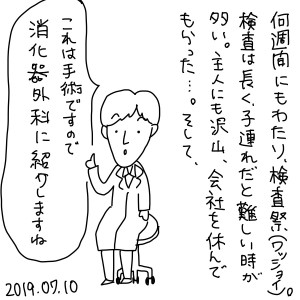 何週間にもわたり、検査祭(ワッショイ)。
検査は長く、子連れだと難しい時が
多い。主人にも沢山、会社を休んで
もらった…。そして、
これは手術ですので
消化器外科に紹介しますね
2019.07.10